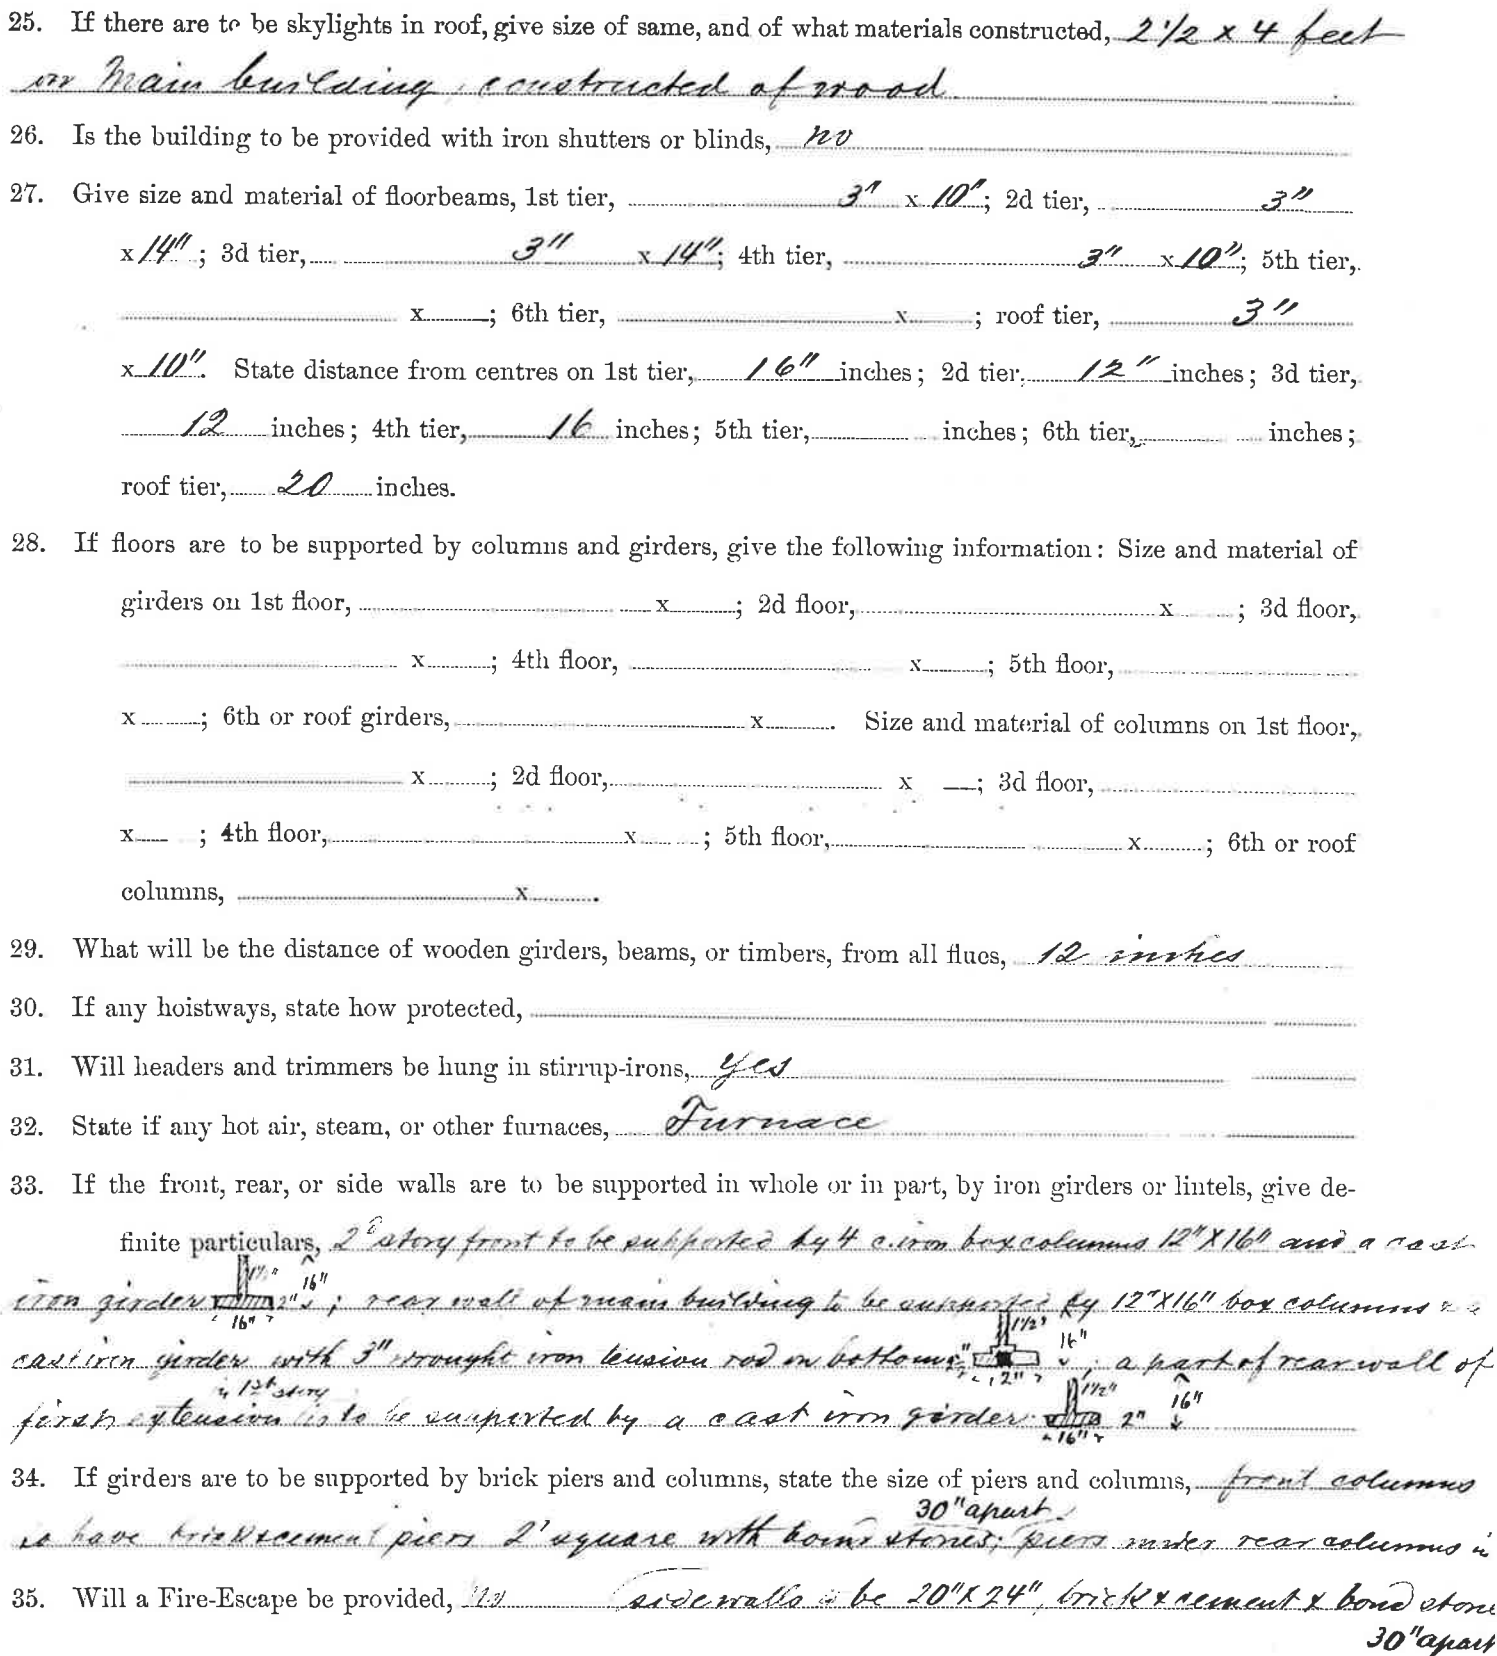 25. If there are to be skylights in roof, give size of same, and of what materials constructed, 2 1/2 x 4 feet
on Main building, constructed of wood
26. Is the building to be provided with iron shutters or blinds, no
27. Give size and material of floorbeams, 1st tier, 3" x 10"; 2d tier, 3"
x 14"; 3d tier, 3" x 14"; 4th tier, 3" x 10"; 5th tier,
x ; 6th tier, x ; roof tier, 3"
x 10". State distance from centres on 1st tier, 16" inches; 2d tier, 12" inches; 3d tier,
12 inches; 4th tier, 16 inches; 5th tier, inches; 6th tier, inches;
roof tier, 20 inches.
28. If floors are to be supported by columns and girders, give the following information: Size and material of
girders on 1st floor, x ; 2d floor, x ; 3d floor,
x ; 4th floor, x ; 5th floor,
x ; 6th or roof girders, x . Size and material of columns on 1st floor,
x ; 2d floor, x ; 3d floor,
x ; 4th floor, x ; 5th floor, x ; 6th or roof
columns, x .
29. What will be the distance of wooden girders, beams, or timbers, from all flues, 12 inches
30. If any hoistways, state how protected,
31. Will headers and trimmers be hung in stirrup-irons, yes
32. State if any hot air, steam, or other furnaces, Furnace
33. If the front, rear, or side walls are to be supported in whole or in part, by iron girders or lintels, give de-
finite particulars, 2d story front to be supported by 4 c. iron box columns 12" X 16" and a cast
iron girder 1 1/2" 16" 2" 16" ; rear wall of main building to be supported by 12" X 16" box columns & a
cast iron girder with 3" wrought iron tension rod on bottom 1 1/2" 16" 12" ; a part of rear wall of
first extension in 1st story is to be supported by a cast iron girder 1 1/2" 16" 2" 16"
34. If girders are to be supported by brick piers and columns, state the size of piers and columns, front columns
to have brick & cement piers 2' square with bond stones 30" apart; piers under rear columns in
35. Will a Fire-Escape be provided, No side walls to be 20" X 24", brick & cement & bond stone
30" apart